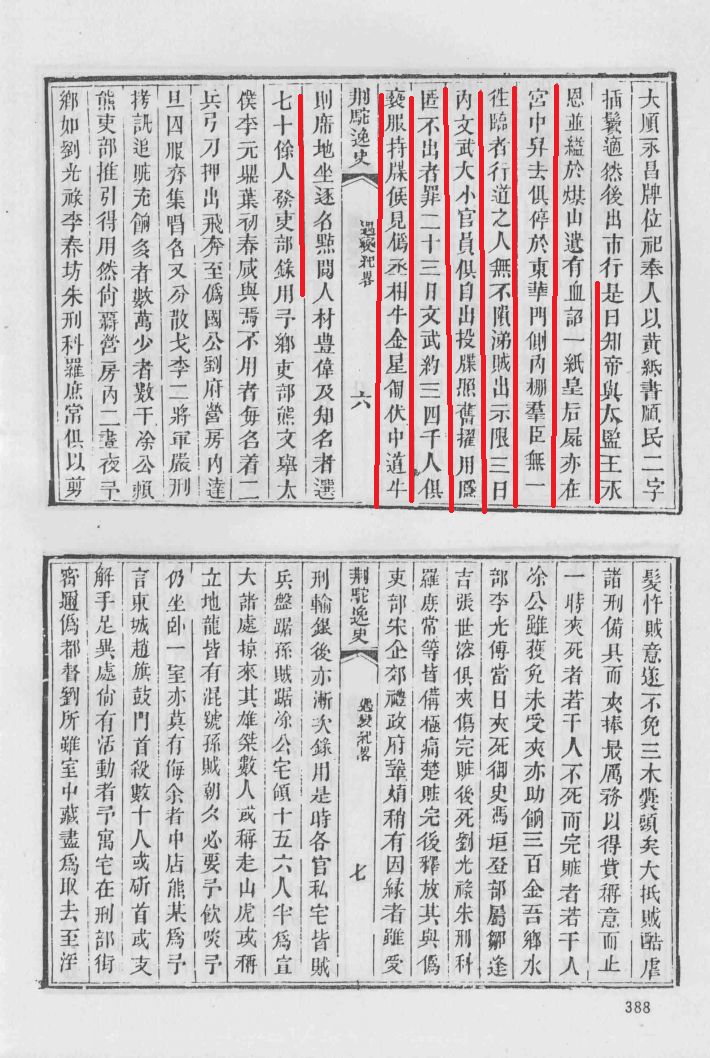 大順永昌牌位祀奉人以黃紙書順民二字
插鬢適然後出市行是日知帝與太監王承
恩並縊於煤山遺有血詔一紙皇后屍亦在
宮中舁去俱停於東華門側內棚羣臣無一
徃臨者行道之人無不隕涕賊出示限三日
內文武大小官員俱自出投牒照舊擢用隱
匿不出者罪二十三日文武約三四千人俱
褻服持牒候見僞丞相牛金星匍伏中道牛
荆駝逸史
遇變紀略
六
則席地坐逐名點閱人材豊偉及知名者選
七十餘人發吏部錄用予鄉吏部熊文舉太
僕李元鼎葉初春咸與焉不用者每名着二
兵弓刀押出飛奔至僞國公劉府營房內達
旦囚服齊集唱名又分散戈李二將軍嚴刑
拷訊追賍充餉多者數萬少者數千凃公賴
熊吏部推引得用然尙羇營房內二晝夜予
鄉如劉光祿李春坊朱刑科羅庶常俱以剪
髮忤賊意遂不免三木囊頭矣大抵賊酷虐
諸刑備具而夾棒最厲務以得貲稱意而止
一時夾死者若干人不死而完賍者若干人
凃公雖獲免未受夾亦助餉三百金吾鄉水
部李光傅當日夾死御史馮垣登部屬鄒逢
吉張世溶俱夾傷完賍後死劉光祿朱刑科
羅庶常等皆備極痛楚賍完後釋放其與僞
吏部宋企郊禮政府鞏焴稍有因緣者雖受
荆駝逸史
遇變紀略
七
刑輸銀後亦漸次錄用是時各官私宅皆賊
兵盤踞孫賊踞凃公宅領十五六人半爲宣
大諸處掠來其雄桀數人或稱走山虎或稱
立地龍皆有混號孫賊朝夕必要予飮啖予
仍坐卧一室亦莫有侮余者中店熊某爲予
言東城趙旗鼓門首殺數十人或斫首或支
解手足異處尙有活動者予寓宅在刑部街
密邇僞都督劉所雖室中藏盡爲取去至淫
388